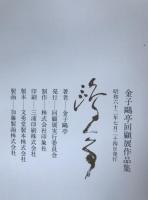 金子鷗亭回顧展作品集
昭和六十二年七月二十四日発行
著者―金子鷗亭
発行―回顧展実行委員会
制作―株式会社印象社
印刷―三浦印刷株式会社
製本―文勇堂製本株式会社
製函―加藤製函株式会社